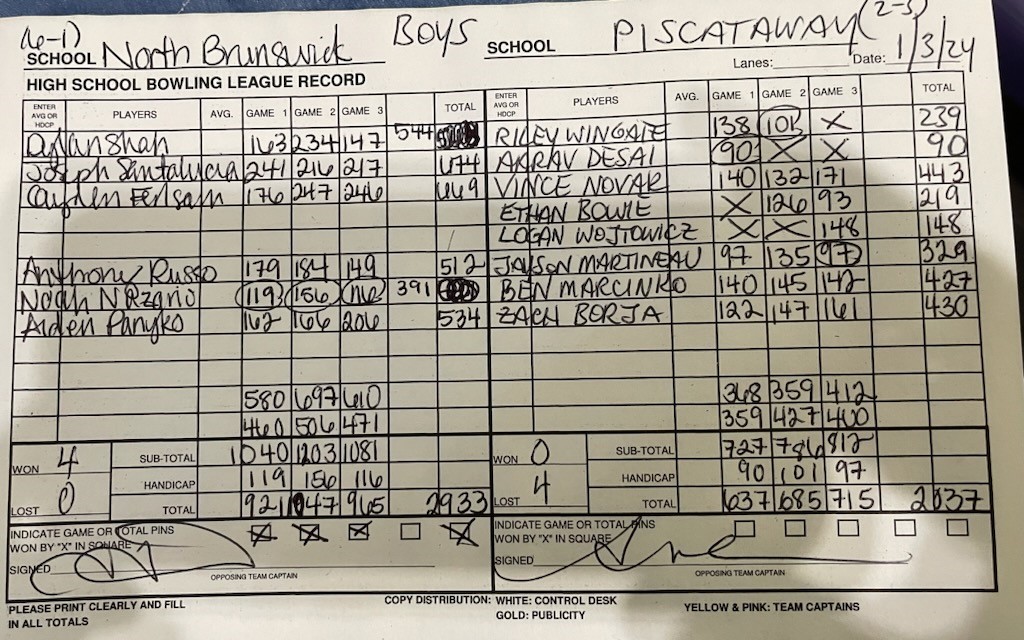 (6-1) BOYS (2-5)
SCHOOL North Brunswick SCHOOL PISCATAWAY
Lanes: Date: 1/3/24
HIGH SCHOOL BOWLING LEAGUE RECORD
ENTER AVG OR HDCP PLAYERS AVG. GAME 1 GAME 2 GAME 3 TOTAL ENTER AVG OR HDCP PLAYERS AVG. GAME 1 GAME 2 GAME 3 TOTAL
Dylan Shah 163 234 147 544 RILEY WINGATE 138 101 X 239
Joseph Santalucia 241 216 217 674 ARRAV DESAI 90 X X 90
Cayden 176 247 246 669 VINCE NOVAR 140 132 171 443
ETHAN BOWIE X 126 93 219
LOGAN WOJTOWICZ X X 148 148
Anthony Russo 179 184 149 512 JAYSON MARTINEAU 97 135 97 329
Noah Nazario 119 156 116 391 BEN MARCINKO 140 145 142 427
Aiden Panyko 162 166 206 534 ZACH BORJA 122 147 161 430
580 697 610 368 359 412
460 506 471 359 427 400
WON 4 SUB-TOTAL 1040 1203 1081 WON 0 SUB-TOTAL 727 786 812
HANDICAP 119 156 116 HANDICAP 90 101 97
LOST 0 TOTAL 921 1047 965 2933 LOST 4 TOTAL 637 685 715 2037
INDICATE GAME OR TOTAL PINS INDICATE GAME OR TOTAL PINS
WON BY "X" IN SQUARE WON BY "X" IN SQUARE
SIGNED SIGNED
OPPOSING TEAM CAPTAIN OPPOSING TEAM CAPTAIN
PLEASE PRINT CLEARLY AND FILL COPY DISTRIBUTION: WHITE: CONTROL DESK YELLOW & PINK: TEAM CAPTAINS
IN ALL TOTALS GOLD: PUBLICITY